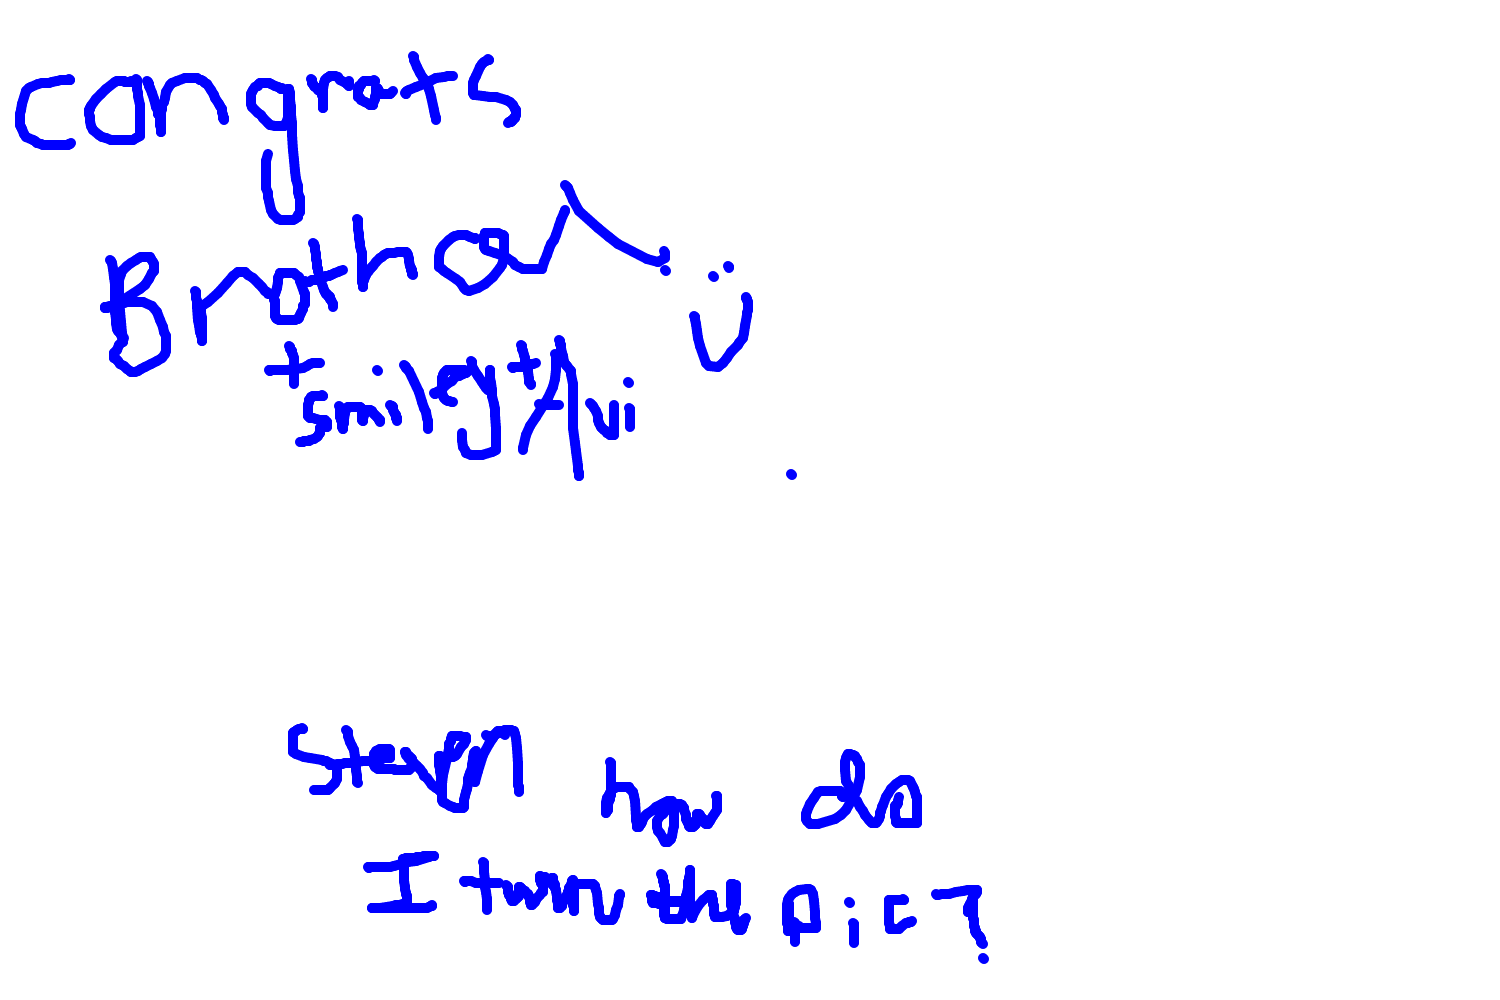 Congrats
Brother
+ smiley + Avi
Steven how do
I turn the pic?